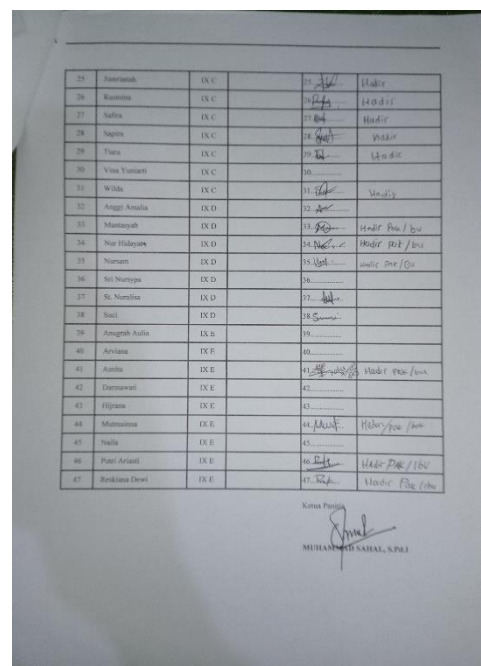 25 Jumrianah IX C 25. Hadir
26 Rasmina IX C 26. Hadir
27 Safira IX C 27. Hadir
28 Sapira IX C 28. Hadir
29 Tiara IX C 29. Hadir
30 Vina Yuniarti IX C 30..............
31 Wilda IX C 31. Hadir
32 Anggi Amalia IX D 32.
33 Mantasyah IX D 33. Hadir Pak / bu
34 Nur Hidayat IX D 34. Hadir Pak / bu
35 Nursam IX D 35. Hadir Pak / bu
36 Sri Nursypa IX D 36..............
37 St. Nuralisa IX D 37.
38 Suci IX D 38. Suci
39 Anugrah Aulia IX E 39..............
40 Arviana IX E 40..............
41 Annita IX E 41. Hadir Pak / bu
42 Darmawati IX E 42..............
43 Hijrana IX E 43..............
44 Mutmainna IX E 44. Hadir / pak / buk
45 Naila IX E 45..............
46 Putri Arianti IX E 46. Hadir Pak / ibu
47 Reskiana Dewi IX E 47. Hadir Pak / ibu
Ketua Panitia
MUHAMMAD SAHAL, S.Pd.I